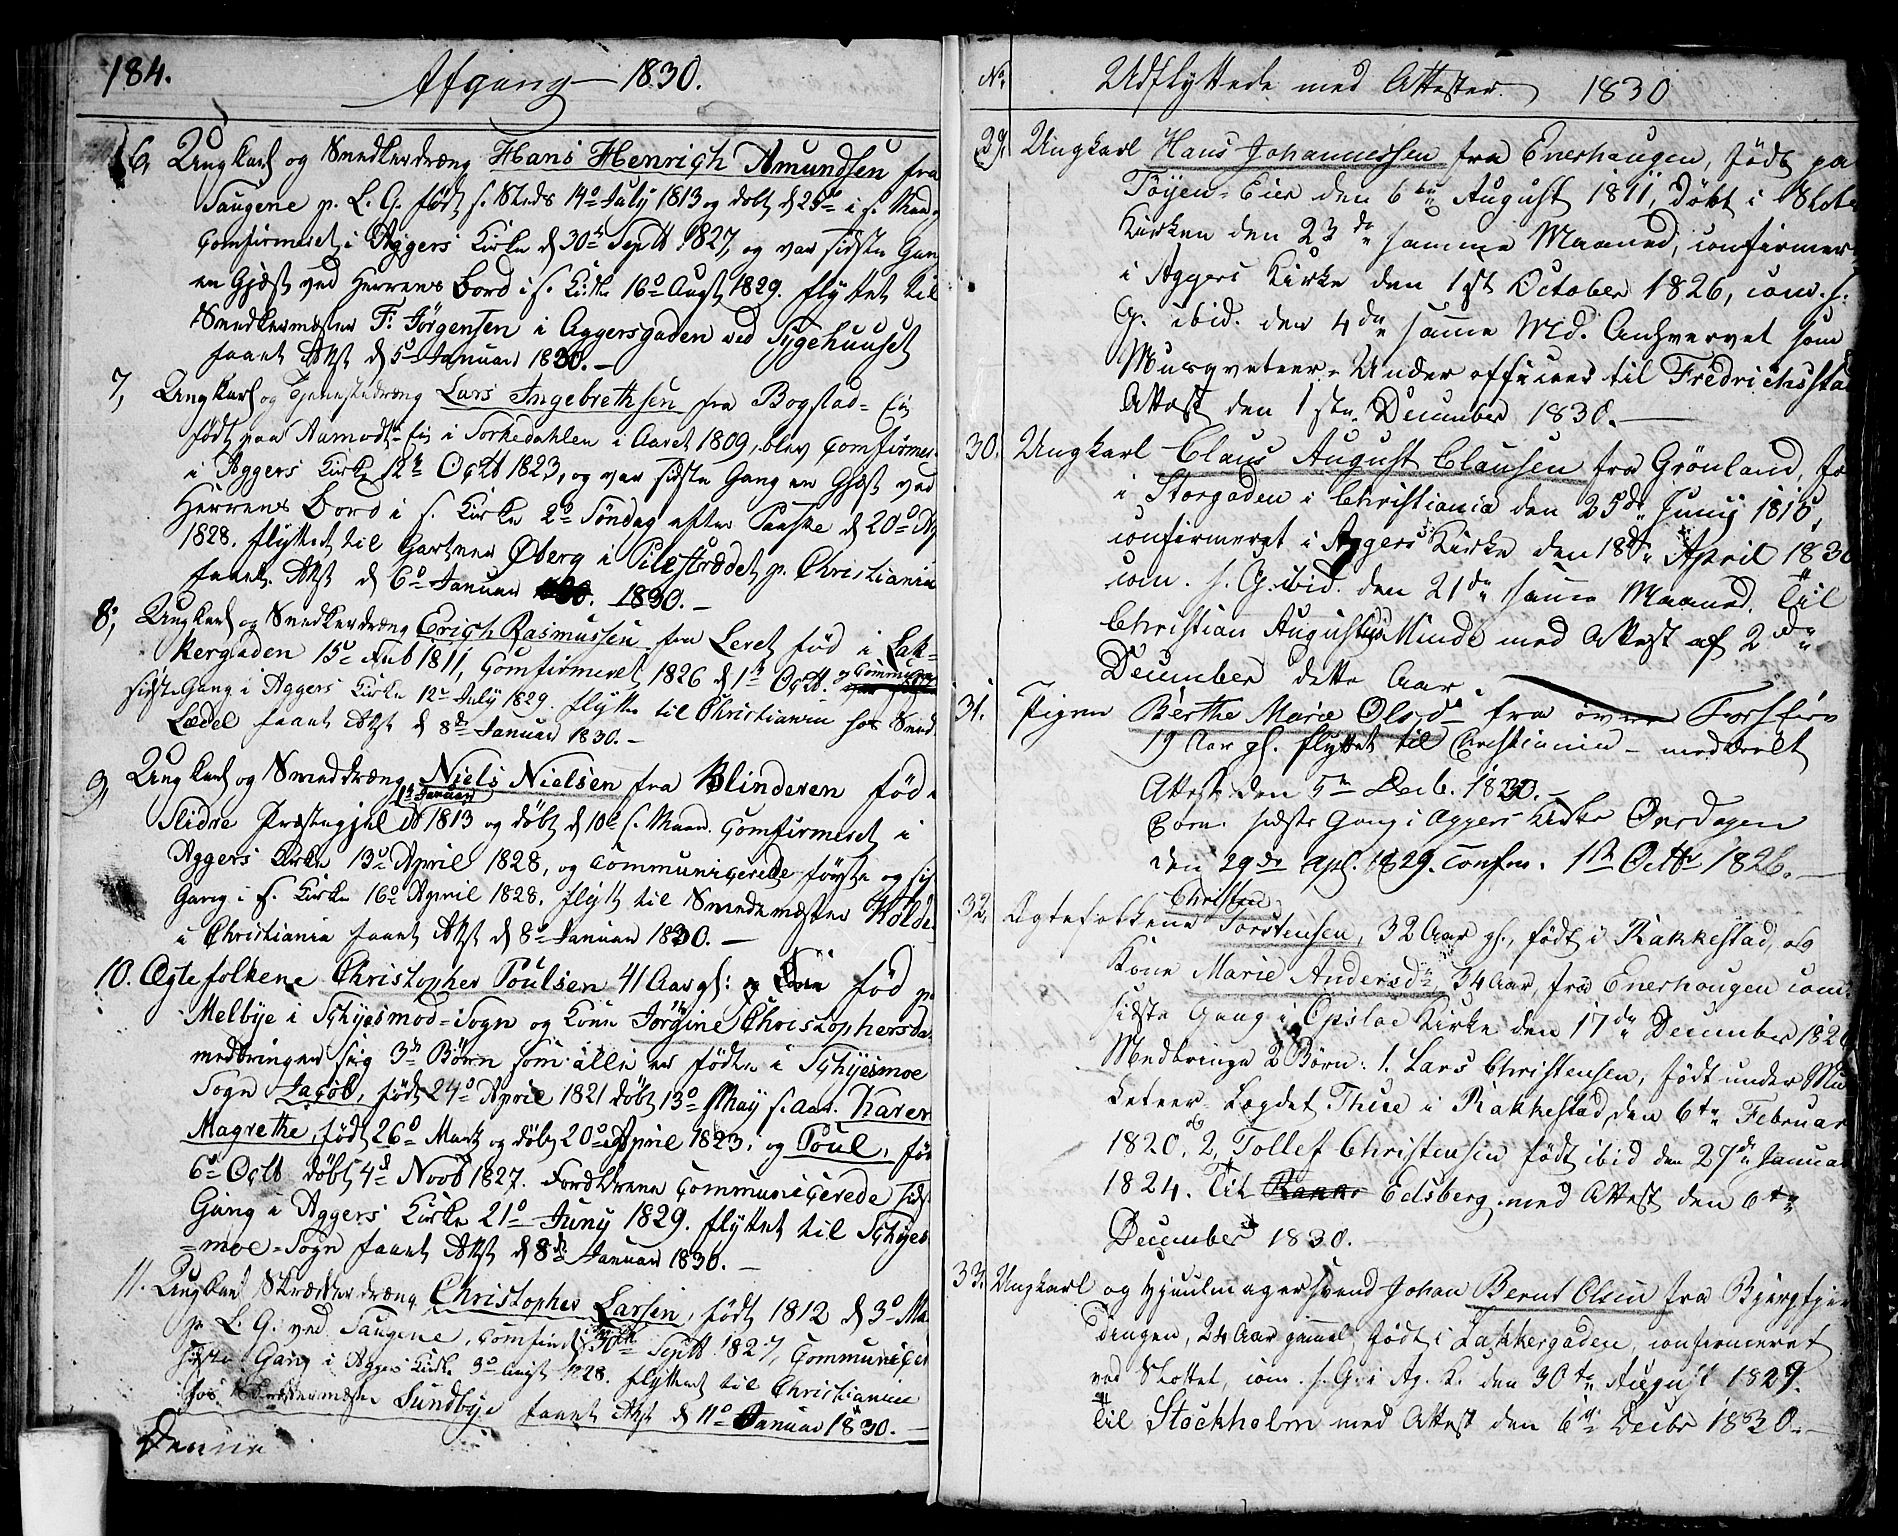 184. Afgang 1830.
6, Ungkarl og Snedkerdræng Hans Henrich Amundsen fra
Saugene p. L. G. født s. Steds 14de July 1813 og døbt d 25de i s. Maan
Comfirmeret i Aggers Kirke d 30te Septb 1827, og var sidste Gang
en Gjæst ved Herrens Bord i s. Kirke 16de Augst 1829. flyttet til
Snedkermæster F. Jörgensen i Aggersgaden ved Sygehuuset
faaet Attst d 5te Januar 1830.—
7, Ungkarl og Tjenestedræng Lars Ingebrethsen fra Bogstad=Eie
født paa Aamodt=Eie i Sorkedahlen i Aaret 1809, blev Comfirmer
i Aggers Kirke 12te Octb 1823, og var sidste Gang en Gjæst ved
Herrens Bord i s. Kirke 2de Söndag efter Paaske d 20de A
1828. flyttet til Gartner Øberg i Pilestrædet p. Christiania
faaet Attst d 6te Januar 1830.—
8, Ungkarl og Snedkerdræng Erich Rasmussen fra Leret fød i Lak=
kergaden 15de Feb 1811, Comfirmeret 1826 d 1te Octb. og Communic
sidste Gang i Aggers Kirke 12te July 1829. flytte til Christiania hos Sned
Lædel faaet Attst d 8de Januar 1830.—
9, Ungkarl og Smeddræng Niels Nielsen fra Blinderen fød i
Slidre Præstegjeld 1te Januar 1813 og døbt d 10de s. Maan. Comfirmeret i
Aggers Kirke 13de April 1828, og Communicerede første og sid
Gang i s. Kirke 16de April 1828. flytt til Smedemæster Kolde
i Christiania faaet Attst d 8de Januar 1830.—
10. Ægtefolkene Christopher Poulsen 41 Aar gl: fød p
Melbye i Schjesmod=Sogn og Kone Jörgine Christophersda
medbringer sig 3de Børn som alle er fødte i Schjesmoe
Sogn Jacob, født 24de April 1821 døbt 13de May s. Aar. Karen
Magrethe, født 26de Marts og døbt 20de April 1823. og Poul, fød
6te Octb døbt 4de Novb 1827. Forældrene Communicerede sidst
Gang i Aggers Kirke 21de Juny 1829. flyttet til Schjes
=moe=Sogn faaet Attst d 8de Januar 1830.—
11. Ungkarl Skrædderdræng Christopher Larsen, født 1812 d 3de Ma
p. L. G. ved Saugene, Comfirmd 30te Septb 1827, Communicer
sidste Gang i Aggers Kirke 3de Augst 1828. flyttet til Christiania
hos Skræddermæster Sundbye faaet Attst d 11te Januar 1830.—
Denne
No. Udflyttede med Attester. 1830
29. Ungkarl Hans Johannessen fra Enerhaugen, født pa
Töyen=Eier den 6te August 1811, døbt i Slots
Kirken den 23de samme Maaned, confirmer
i Aggers Kirke den 1ste October 1826, com. s.
G. ibid. den 4de samme Md. Anhvervet som
Musqveteer=Underofficeer til Fredrichsstad
Attest den 1ste December 1830.—
30. Ungkarl Claus August Clausen fra Grönland, fø
i Storgaden i Christiania den 25de Junij 1815,
confirmeret i Aggers Kirke den 18de April 1830
com. s. G. ibid. den 21de samme Maaned. Til
Christian Augusts Minde med Attest af 2de
December dette Aar.
31. Pigen Berthe Marie Olsd. fra övre Foss
19 Aar gl. flyttet til Christiania — meddeelt
Attest den 5te Decb. 1830.—
Com. sidste Gang i Aggers Kirke Onsdagen
den 29de Apl. 1829. Confm. 1te Octbr 1826.—
32. Ægtefolkene Christen Torstensen, 32 Aar gl., født i Rakkestad, og
Kone Marie Andersdr, 34 Aar, fra Enerhougen com.
sidste Gang i Opsloe Kirke den 17de December 1826
Medbringe 2 Børn: 1. Lars Christensen, født under Mu
keteer=Lægdet Thue i Rakkestad, den 6te Februar
1820. og 2, Tollef Christensen født ibid den 27de Janua
1824. Til Edsberg med Attest den 6te
December 1830.
33. Ungkarl og Hjuulmagersvend Johan Bernt Olsen fra Bjerg
dingen, 24 Aar gammel, født i Lakkergaden, confirmeret
ved Slottet, com. s. G. i Ag. K. den 30te August 1829.
Til Stockholm med Attest den 6te Decbr 1830.—